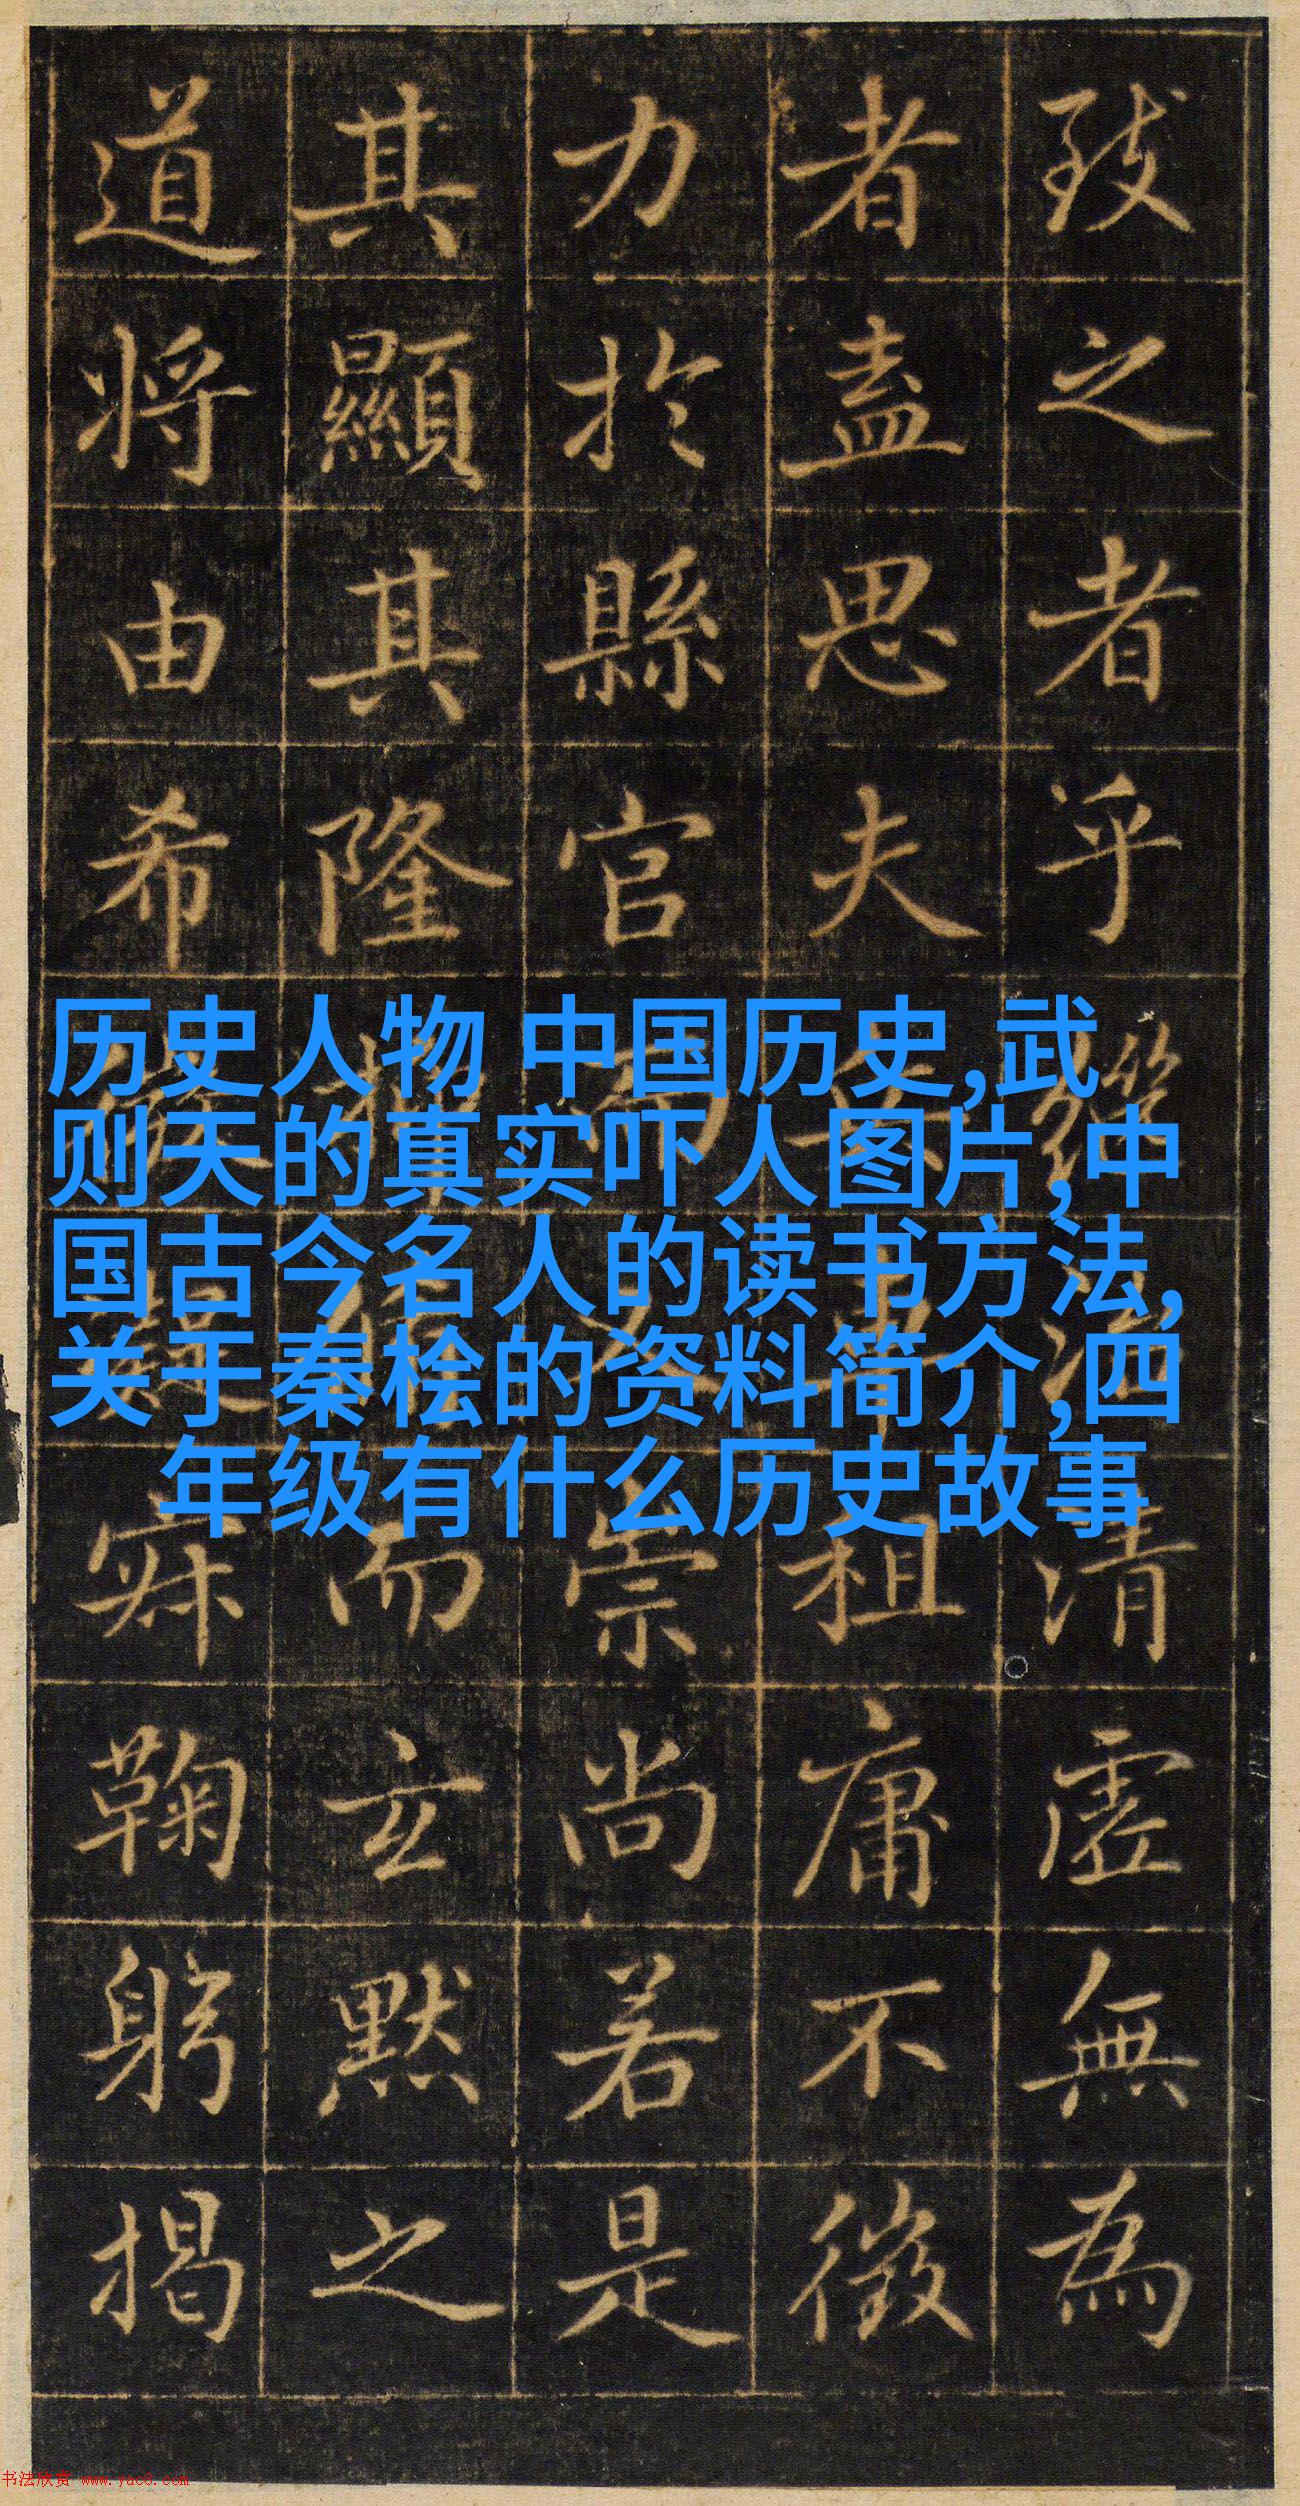 致之者乎清虛無為
者盡思夫租庸不徵
力於縣官崇尚若是
其顯其隆而玄默之
道將由希寐鞠躬揭
历史人物 中国历史,武
则天的真实吓人图片,中
国古今名人的读书方法,
关于秦桧的资料简介,四
年级有什么历史故事
书法欣赏 www.yac8.com